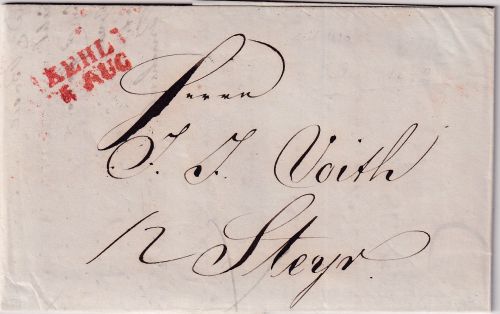 KEHL
AUG
Herrn
J. J. Voith
Steyr.